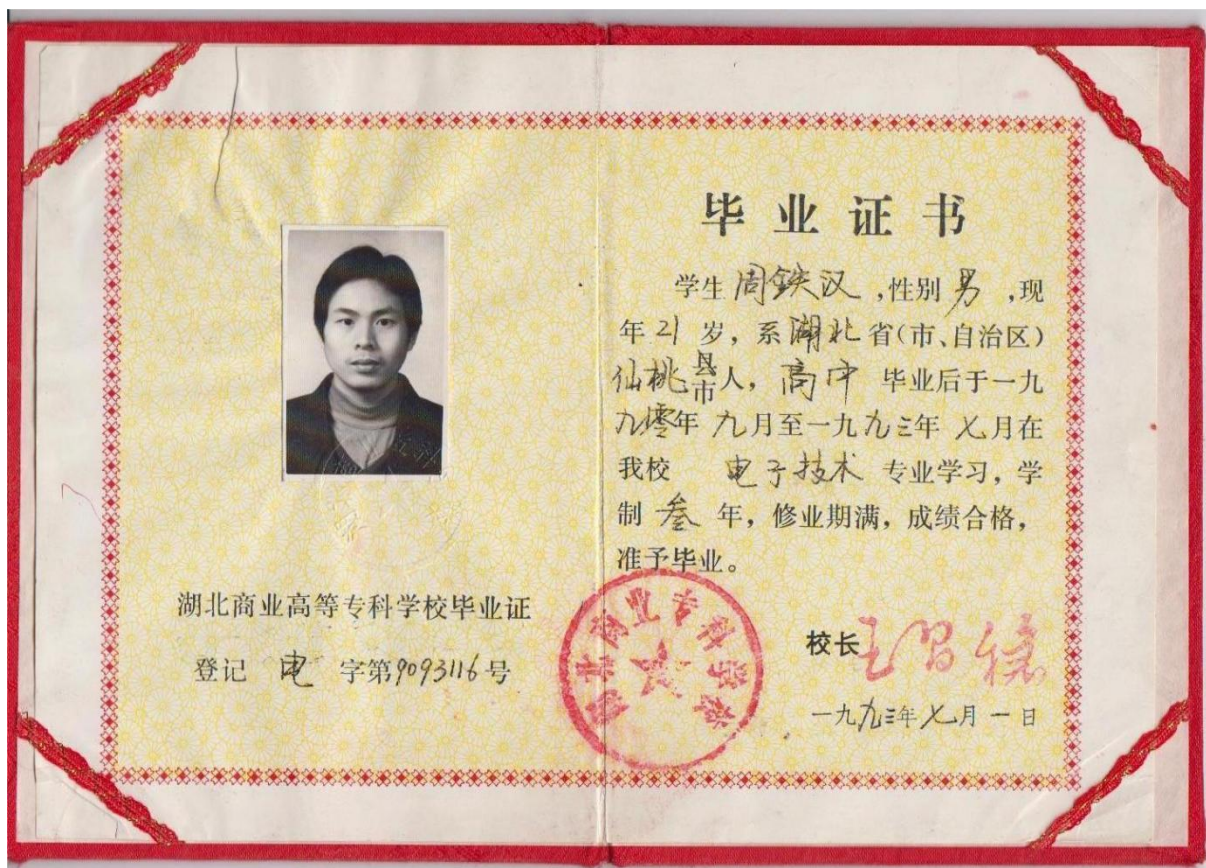 湖北商业高等专科学校毕业证
登记 电 字第9093116号
毕业证书
学生 周铁汉 ,性别 男 ,现
年 21 岁，系 湖北 省(市、自治区)
仙桃 县市人，高中 毕业后于一九
九零年 九月至一九九三年 七月在
我校 电子技术 专业学习，学
制 叁 年，修业期满，成绩合格，
准予毕业。
湖北商业专科学校
校长
一九九三年七月一日